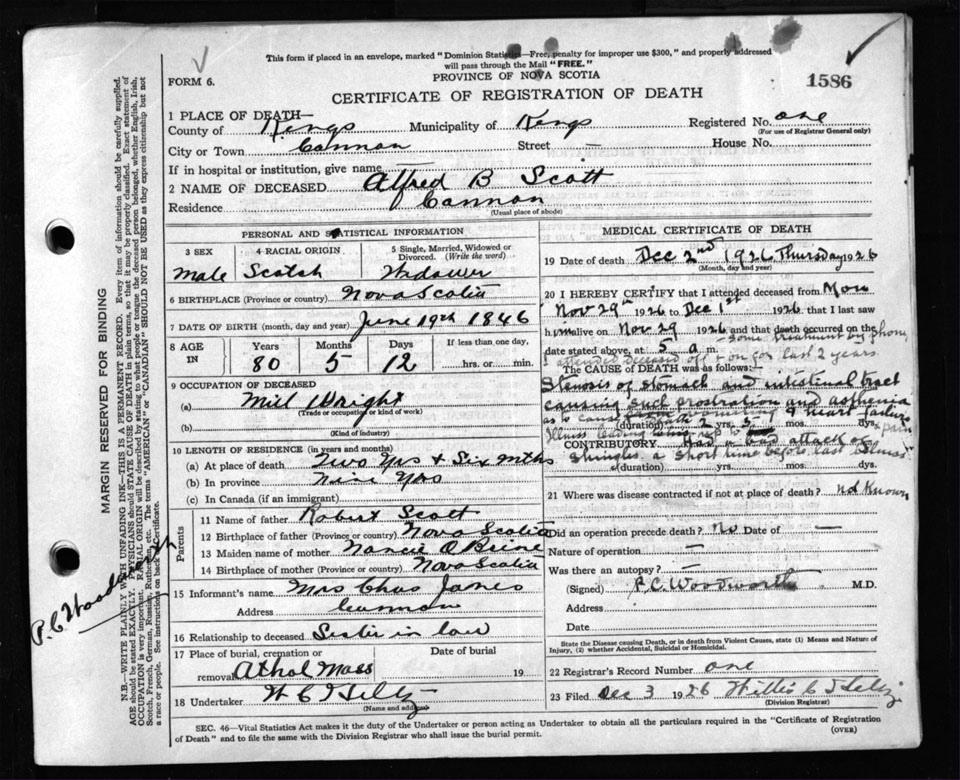 This form if placed in an envelope, marked "Dominion Statistics—Free, penalty for improper use $300," and properly addressed
will pass through the Mail "FREE."
FORM 6.
PROVINCE OF NOVA SCOTIA
1586
CERTIFICATE OF REGISTRATION OF DEATH
1 PLACE OF DEATH—
County of Kings Municipality of Kings Registered No. one
(For use of Registrar General only)
City or Town Cannon Street — House No.
If in hospital or institution, give name
2 NAME OF DECEASED Alfred B Scott
Residence Cannon
(Usual place of abode)
PERSONAL AND STATISTICAL INFORMATION
3 SEX 4 RACIAL ORIGIN 5 Single, Married, Widowed or Divorced. (Write the word)
Male Scotch Widower
6 BIRTHPLACE (Province or country) Nova Scotia
7 DATE OF BIRTH (month, day and year) June 19th 1846
8 AGE IN Years Months Days If less than one day,
80 5 12 hrs. or min.
9 OCCUPATION OF DECEASED
(a) Mill Wright
(Trade or occupation or kind of work)
(b)
(Kind of industry)
10 LENGTH OF RESIDENCE (in years and months)
(a) At place of death Two Yrs + Six Mths
(b) In province Nine Yrs
(c) In Canada (if an immigrant)
Parents
11 Name of father Robert Scott
12 Birthplace of father (Province or country) Nova Scotia
13 Maiden name of mother Nancie O'Brine
14 Birthplace of mother (Province or country) Nova Scotia
15 Informant's name Mrs Chas Janes
Address Cannon
16 Relationship to deceased Sister in law
17 Place of burial, cremation or Date of burial
removal Athol Mass 19
18 Undertaker
(Name and address)
MEDICAL CERTIFICATE OF DEATH
19 Date of death Dec 2nd 1926 Thursday 1926
(Month, day and year)
20 I HEREBY CERTIFY that I attended deceased from Mon
Nov 29th 1926 to Dec 1st 1926 that I last saw
him alive on Nov 29 1926 and that death occurred on the
— some treatment by phone
date stated above, at 5 a m.
I attended deceased off + on for last 2 years
The CAUSE OF DEATH was as follows:—
Stenosis of stomach and intestinal tract
causing such prostration and asthenia
as to cause heart failure
(duration) 2 yrs. dys.
Illness + pain
CONTRIBUTORY Had a bad attack of
shingles a short time before last illness
(duration) yrs. mos. dys.
21 Where was disease contracted if not at place of death? not known
Did an operation precede death? no Date of —
Nature of operation —
Was there an autopsy? —
(Signed) P.C. Woodworth M.D.
Address
Date
State the Disease causing Death, or in death from Violent Causes, state (1) Means and Nature of
Injury, (2) whether Accidental, Suicidal or Homicidal.
22 Registrar's Record Number one
23 Filed Dec 3 1926 Willis C
(Division Registrar)
SEC. 46—Vital Statistics Act makes it the duty of the Undertaker or person acting as Undertaker to obtain all the particulars required in the "Certificate of Registration
of Death" and to file the same with the Division Registrar who shall issue the burial permit.
(OVER)
MARGIN RESERVED FOR BINDING
N.B.—WRITE PLAINLY WITH UNFADING INK—THIS IS A PERMANENT RECORD. Every item of information should be carefully supplied.
AGE should be stated EXACTLY. PHYSICIANS should STATE CAUSE OF DEATH in plain terms, so that it may be properly classified. Exact statement of
OCCUPATION is very important. RACIAL ORIGIN will be described by stating to what people or tongue the deceased person belonged, whether English, Irish,
Scotch, French, German, Russian, Ruthenian, etc. The terms "AMERICAN" or "CANADIAN" SHOULD NOT BE USED as they express citizenship but not
a race or people. See instructions on back of Certificate.
P.C. Woodworth